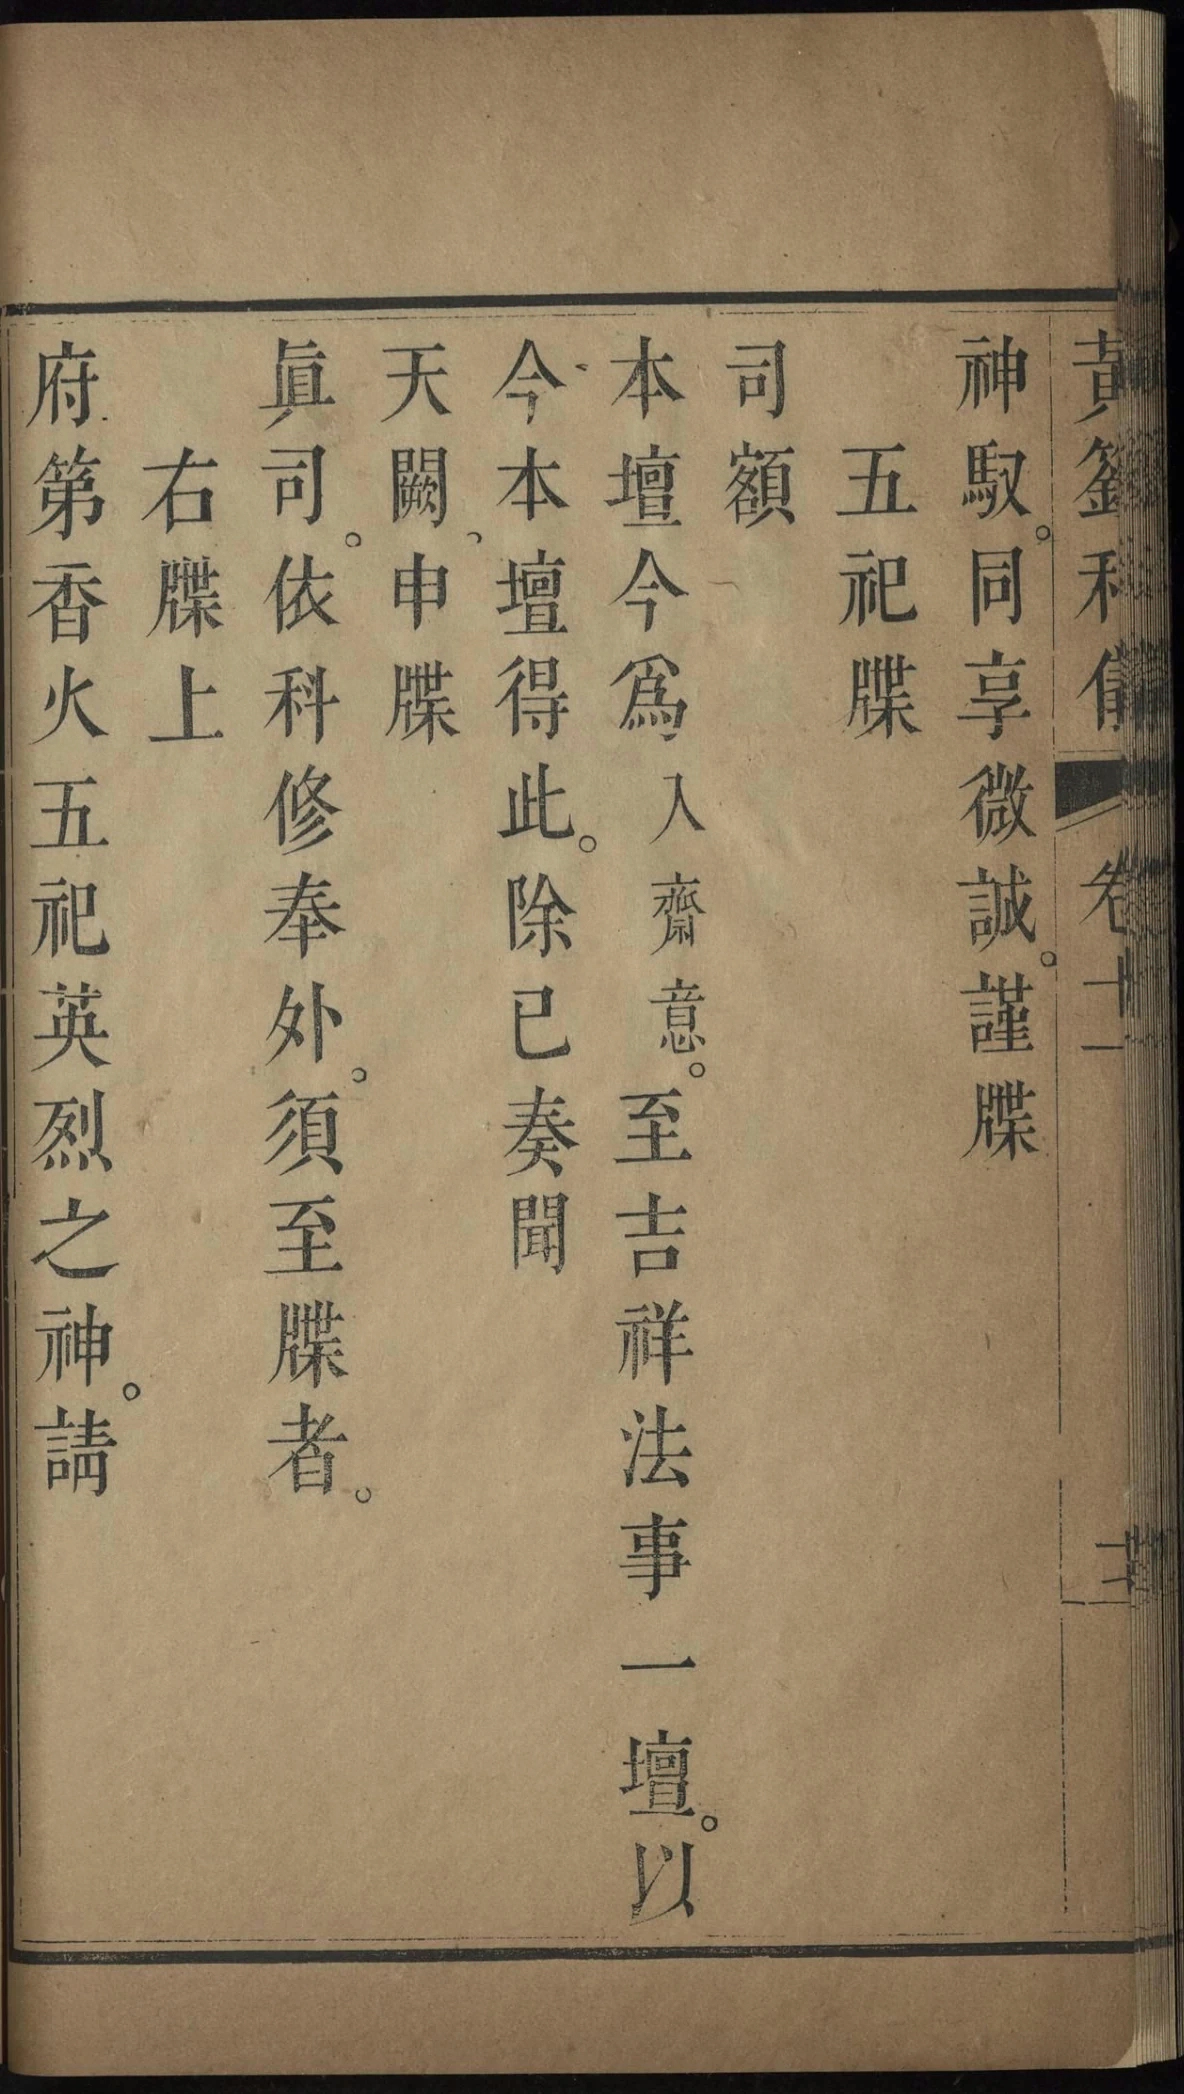 黃籙科儀 卷十一
神馭。同享微誠。謹牒
五祀牒
司額
本壇今爲入齋意。至吉祥法事一壇。以
今本壇得此。除已奏聞
天闕、申牒
眞司。依科修奉外。須至牒者。
右牒上
府第香火五祀英烈之神。請